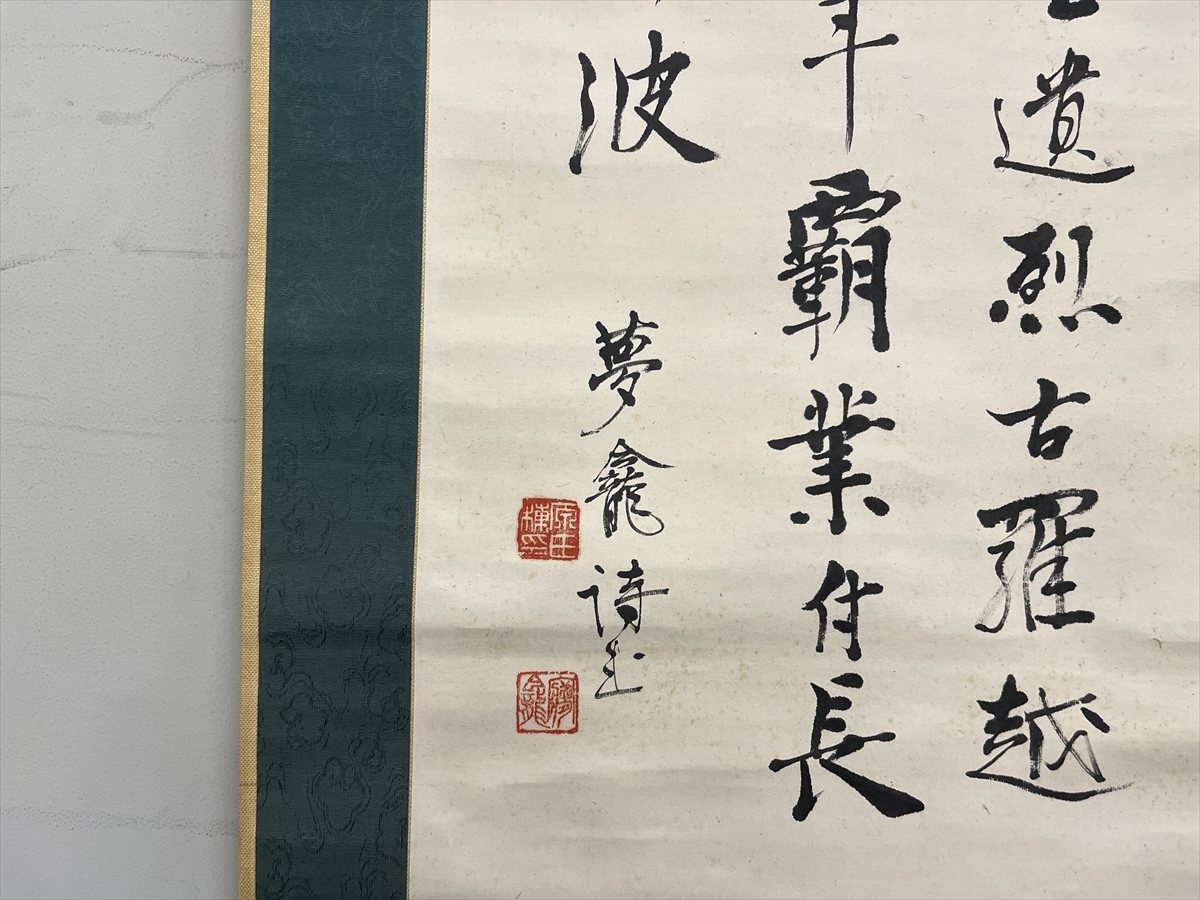 遺烈古羅越
年霸業付長
波
夢龕詩
夢龕